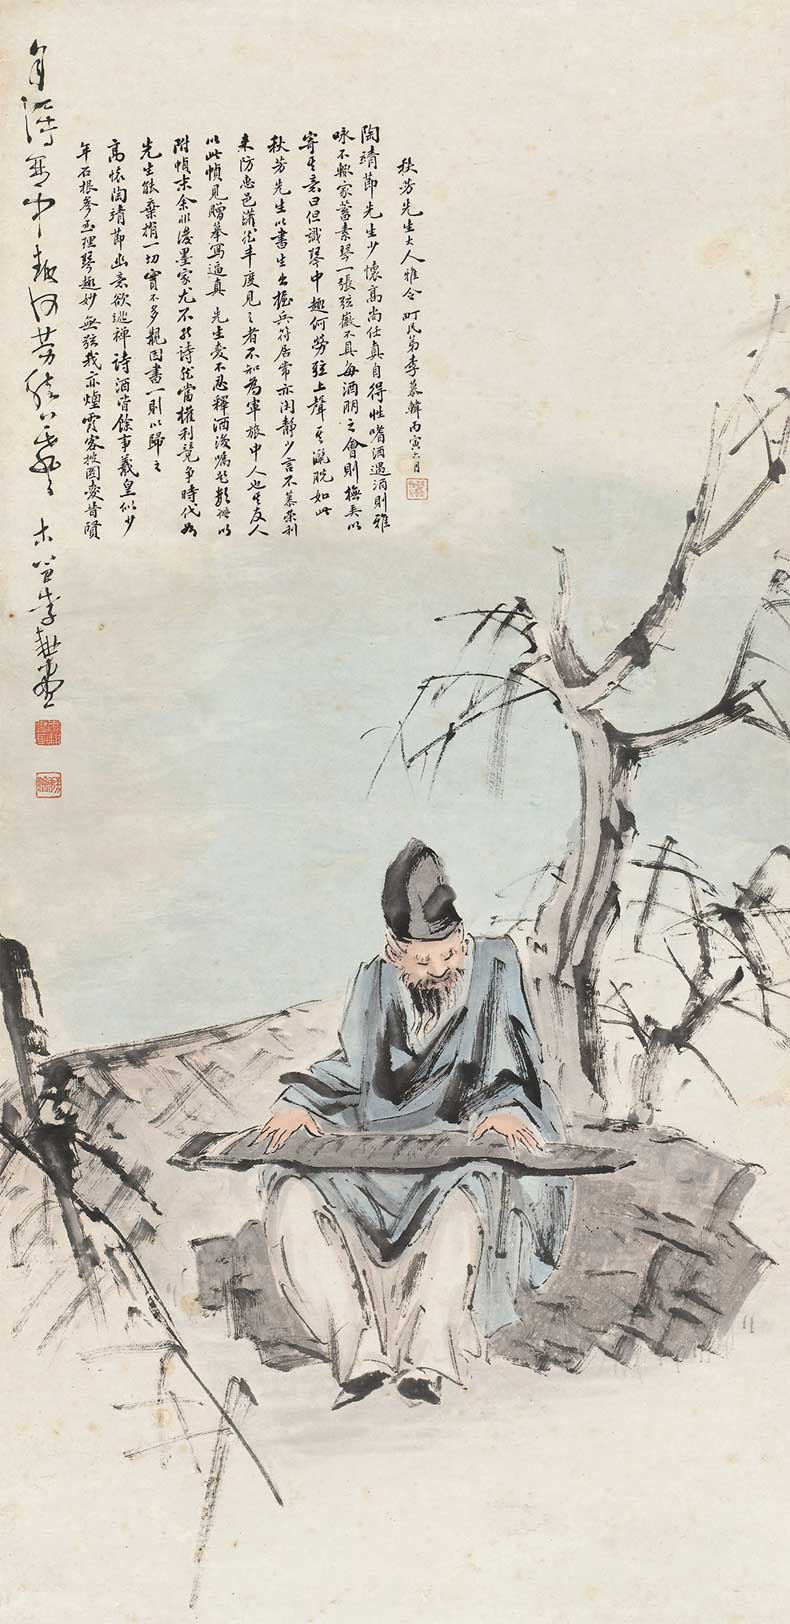 秋芳先生大人雅令 町民弟李慕韓丙寅六月
陶靖節先生少懷高尚任真自得性嗜酒遇酒則雅
咏不輟家蓄素琴一張弦徽不具每酒朋之會則撫弄以
寄其意曰但識琴中趣何勞弦上聲其瀟脫如此
秋芳先生以書生出握兵符居常亦閒靜少言不慕榮利
来防惠邑瀟然丰度見之者不知為軍旅中人也其友人
以此幀見贈摹寫逼真 先生愛不忍釋酒後囑題數語以
附幀末余墨家尤不能詩然當權利競爭時代如
先生能棄捐一切實不多觏因書一則以歸之
高懷陶靖節幽意欲逃禪詩酒皆餘事羲皇似少
年石根參玉理琴趣妙無弦我亦煙霞客披圖愛昔賢
中趣何勞 李耕畫